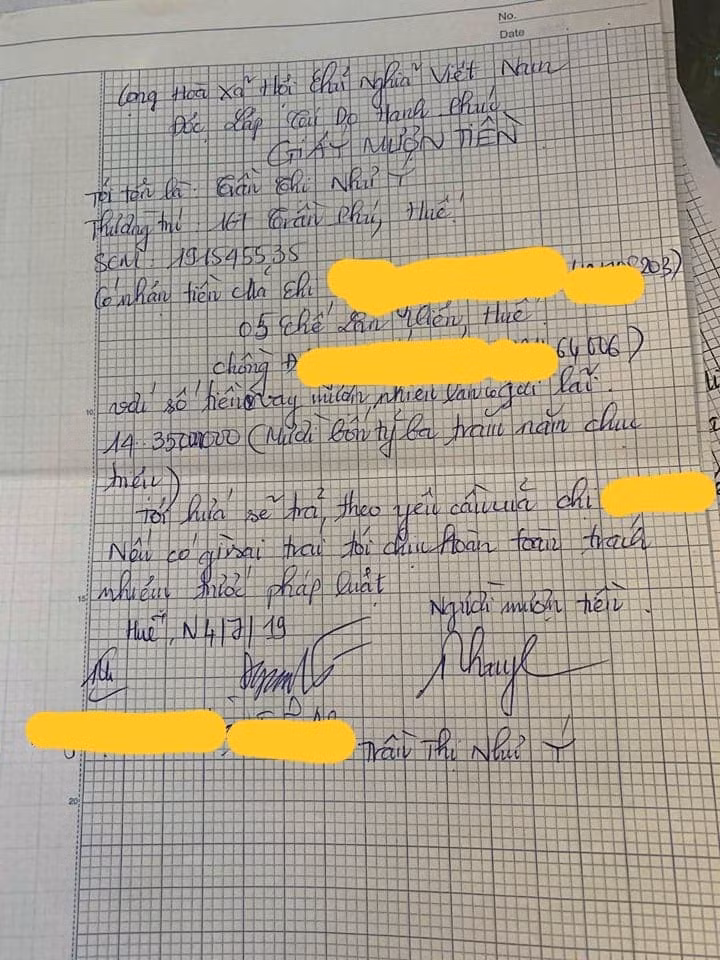 No.
Date
Cộng Hoà Xã Hội Chủ Nghĩa Việt Nam
Độc Lập Tự Do Hạnh Phúc
GIẤY MƯỢN TIỀN
Tôi tên là Trần Thị Như Ý
Thường trú 161 Trần Phú, Huế
SCM: 191545535
Có nhận tiền của chị 203)
05 Chế Lan Viên, Huế
chồng Đ 64006)
với số tiền vay mượn nhiều lần gồm lãi
10
14.350000000 (Mười bốn tỷ ba trăm năm chục
triệu)
Tôi hứa sẽ trả, theo yêu cầu của chị
Nếu có gì sai trái tôi chịu hoàn toàn trách
15
nhiệm trước pháp luật
Huế, N4/7/19 Người mượn tiền.
Trần Thị Như Ý
20